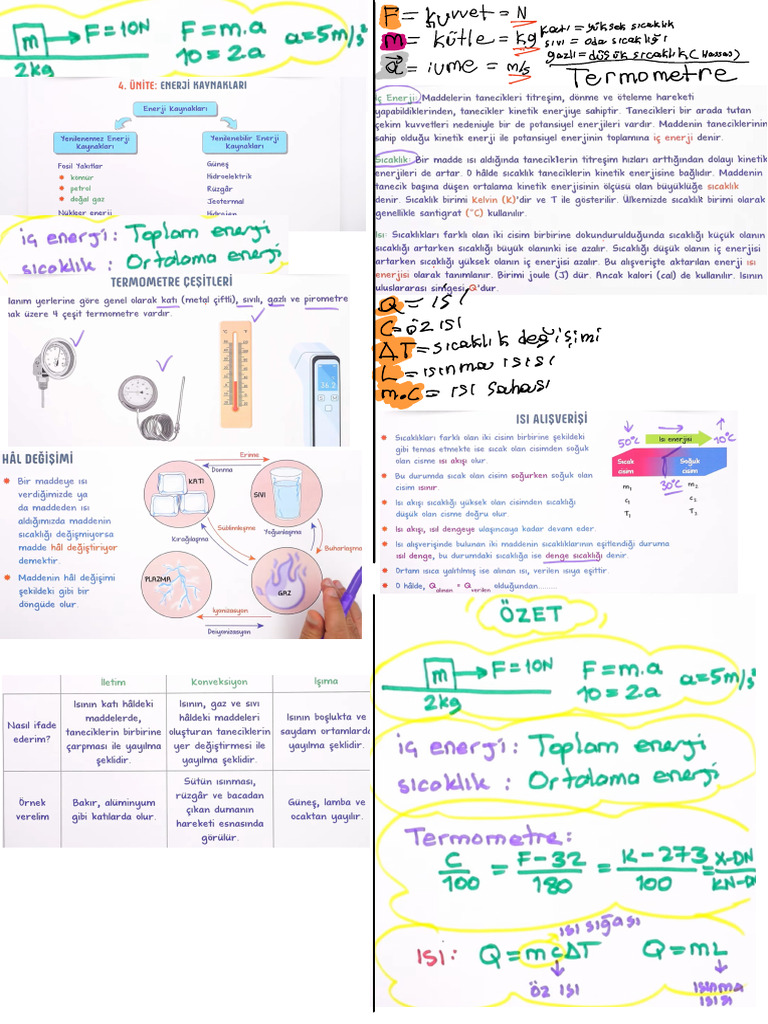 m → F=10N F=m.a a=5m/s²
2kg 10=2.a
4. ÜNİTE: ENERJİ KAYNAKLARI
Enerji Kaynakları
Yenilenemez Enerji Kaynakları
Yenilenebilir Enerji Kaynakları
Fosil Yakıtlar
kömür
petrol
doğal gaz
Nükleer enerji
Güneş
Hidroelektrik
Rüzgâr
Jeotermal
Hidrojen
iç energi: Toplam energi
sıcaklık : Ortalama energi
TERMOMETRE ÇEŞİTLERİ
lanım yerlerine göre genel olarak katı (metal çiftli), sıvılı, gazlı ve pirometre
nak üzere 4 çeşit termometre vardır.
HÂL DEĞİŞİMİ
Bir maddeye ısı
verdiğimizde ya
da maddeden ısı
aldığımızda maddenin
sıcaklığı değişmiyorsa
madde hal değiştiriyor
demektir.
Maddenin hâl değişimi
şekildeki gibi bir
döngüde olur.
Erime
Donma
KATI
SIVI
Süblimleşme
Kırağılaşma
Yoğunlaşma
Buharlaşma
PLAZMA
GAZ
İyonizasyon
Deiyonizasyon
İletim Konveksiyon Işıma
Nasıl ifade
ederim?
Isının katı hâldeki
maddelerde,
taneciklerin birbirine
çarpması ile yayılma
şeklidir.
Isının, gaz ve sıvı
hâldeki maddeleri
oluşturan taneciklerin
yer değiştirmesi ile
yayılma şeklidir.
Isının boşlukta ve
saydam ortamlarda
yayılma şeklidir.
Örnek
verelim
Bakır, alüminyum
gibi katılarda olur.
Sütün ısınması,
rüzgâr ve bacadan
çıkan dumanın
hareketi esnasında
görülür.
Güneş, lamba ve
ocaktan yayılır.
F = kuvvet = N
m = kütle = kg
a = ivme = m/s
katı = yüksek sıcaklık
sıvı = oda sıcaklığı
gazlı = düşük sıcaklık (Hassas)
Termometre
İç Enerji: Maddelerin tanecikleri titreşim, dönme ve öteleme hareketi
yapabildiklerinden, tanecikler kinetik enerjiye sahiptir. Tanecikleri bir arada tutan
çekim kuvvetleri nedeniyle bir de potansiyel enerjileri vardır. Maddenin taneciklerinin
sahip olduğu kinetik enerji ile potansiyel enerjinin toplamına iç enerji denir.
Sıcaklık: Bir madde ısı aldığında taneciklerin titreşim hızları arttığından dolayı kinetik
enerjileri de artar. O hâlde sıcaklık taneciklerin kinetik enerjisine bağlıdır. Maddenin
tanecik başına düşen ortalama kinetik enerjisinin ölçüsü olan büyüklüğe sıcaklık
denir. Sıcaklık birimi Kelvin (K)'dir ve T ile gösterilir. Ülkemizde sıcaklık birimi olarak
genellikle santigrat (°C) kullanılır.
Isı: Sıcaklıkları farklı olan iki cisim birbirine dokundurulduğunda sıcaklığı küçük olanın
sıcaklığı artarken sıcaklığı büyük olanınki ise azalır. Sıcaklığı düşük olanın iç enerjisi
artarken sıcaklığı yüksek olanın iç enerjisi azalır. Bu alışverişte aktarılan enerji ısı
enerjisi olarak tanımlanır. Birimi joule (J) dür. Ancak kalori (cal) de kullanılır. Isının
uluslararası simgesi Q'dur.
Q = ısı
C = öz ısı
ΔT = sıcaklık değişimi
L = ısınma ısısı
m.C = ısı sahası
ISI ALIŞVERİŞİ
Sıcaklıkları farklı olan iki cisim birbirine şekildeki
gibi temas etmekte ise sıcak olan cisimden soğuk
olan cisme ısı akışı olur.
Bu durumda sıcak olan cisim soğurken soğuk olan
cisim ısınır.
Isı akışı sıcaklığı yüksek olan cisimden sıcaklığı
düşük olan cisme doğru olur.
Isı akışı, ısıl dengeye ulaşıncaya kadar devam eder.
Isı alışverişinde bulunan iki maddenin sıcaklıklarının eşitlendiği duruma
ısıl denge, bu durumdaki sıcaklığa ise denge sıcaklığı denir.
Ortam ısıca yalıtılmış ise alınan ısı, verilen ısıya eşittir.
O hâlde, Qalınan = Qverilen olduğundan........
50°C Isı enerjisi 10°C
Sıcak cisim
Soğuk cisim
30°C
m₁ m₂
c₁ c₂
T₁ T₂
ÖZET
m → F=10N F=m.a a=5m/s²
2kg 10=2.a
iç energi: Toplam energi
sıcaklık : Ortalama energi
Termometre:
C/100 = F-32/180 = K-273/100 = X-DN/KN-DN
ısı sığası
ısı: Q=mcΔT Q=mL
öz ısı
ısınma
ısısı